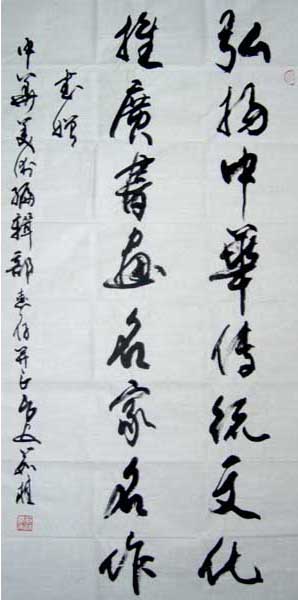 弘扬中華传統文化
推廣書画名家名作
书赠
中华美术编辑部惠存